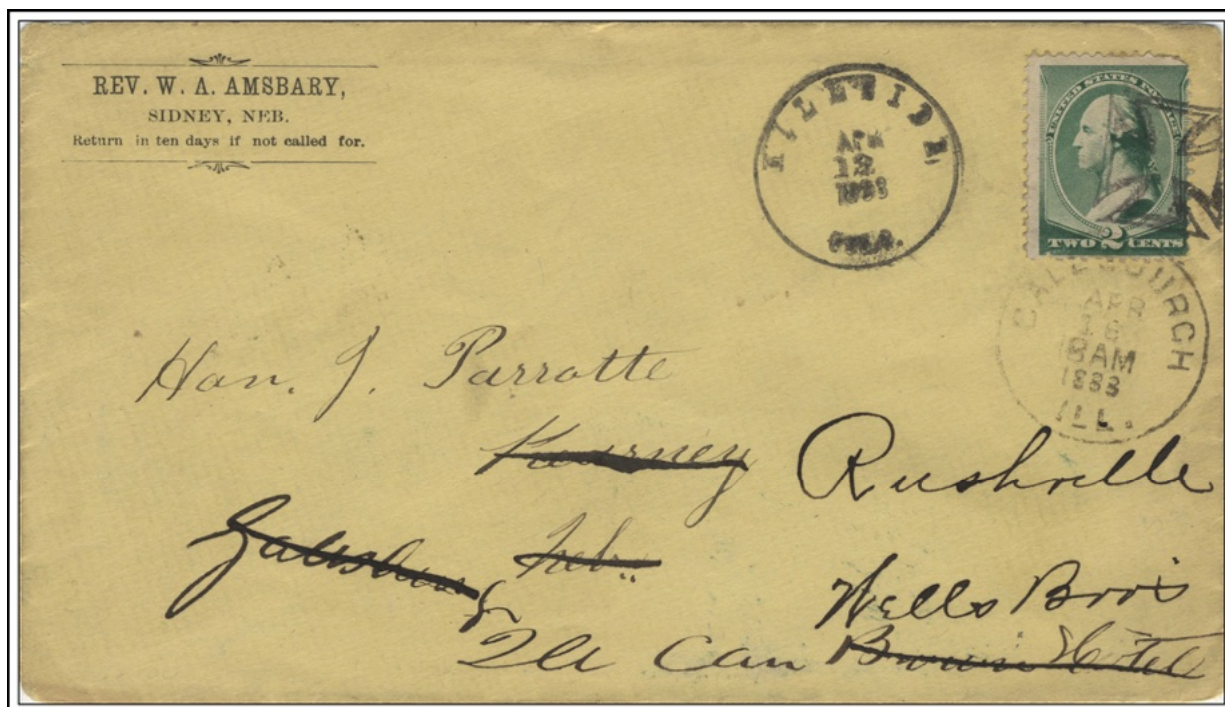 REV. W. A. AMSBARY,
SIDNEY, NEB.
Return in ten days if not called for.
HILLSIDE,
APR
12
1888
COLO.
UNITED STATES POSTAGE
TWO 2 CENTS
GALESBURGH
APR
16
8AM
1888
ILL.
Hon. J. Parrotte
Kearney Rushville
Galesburg Nebr.
Wells Bro's
Ill Care Brown's Hotel